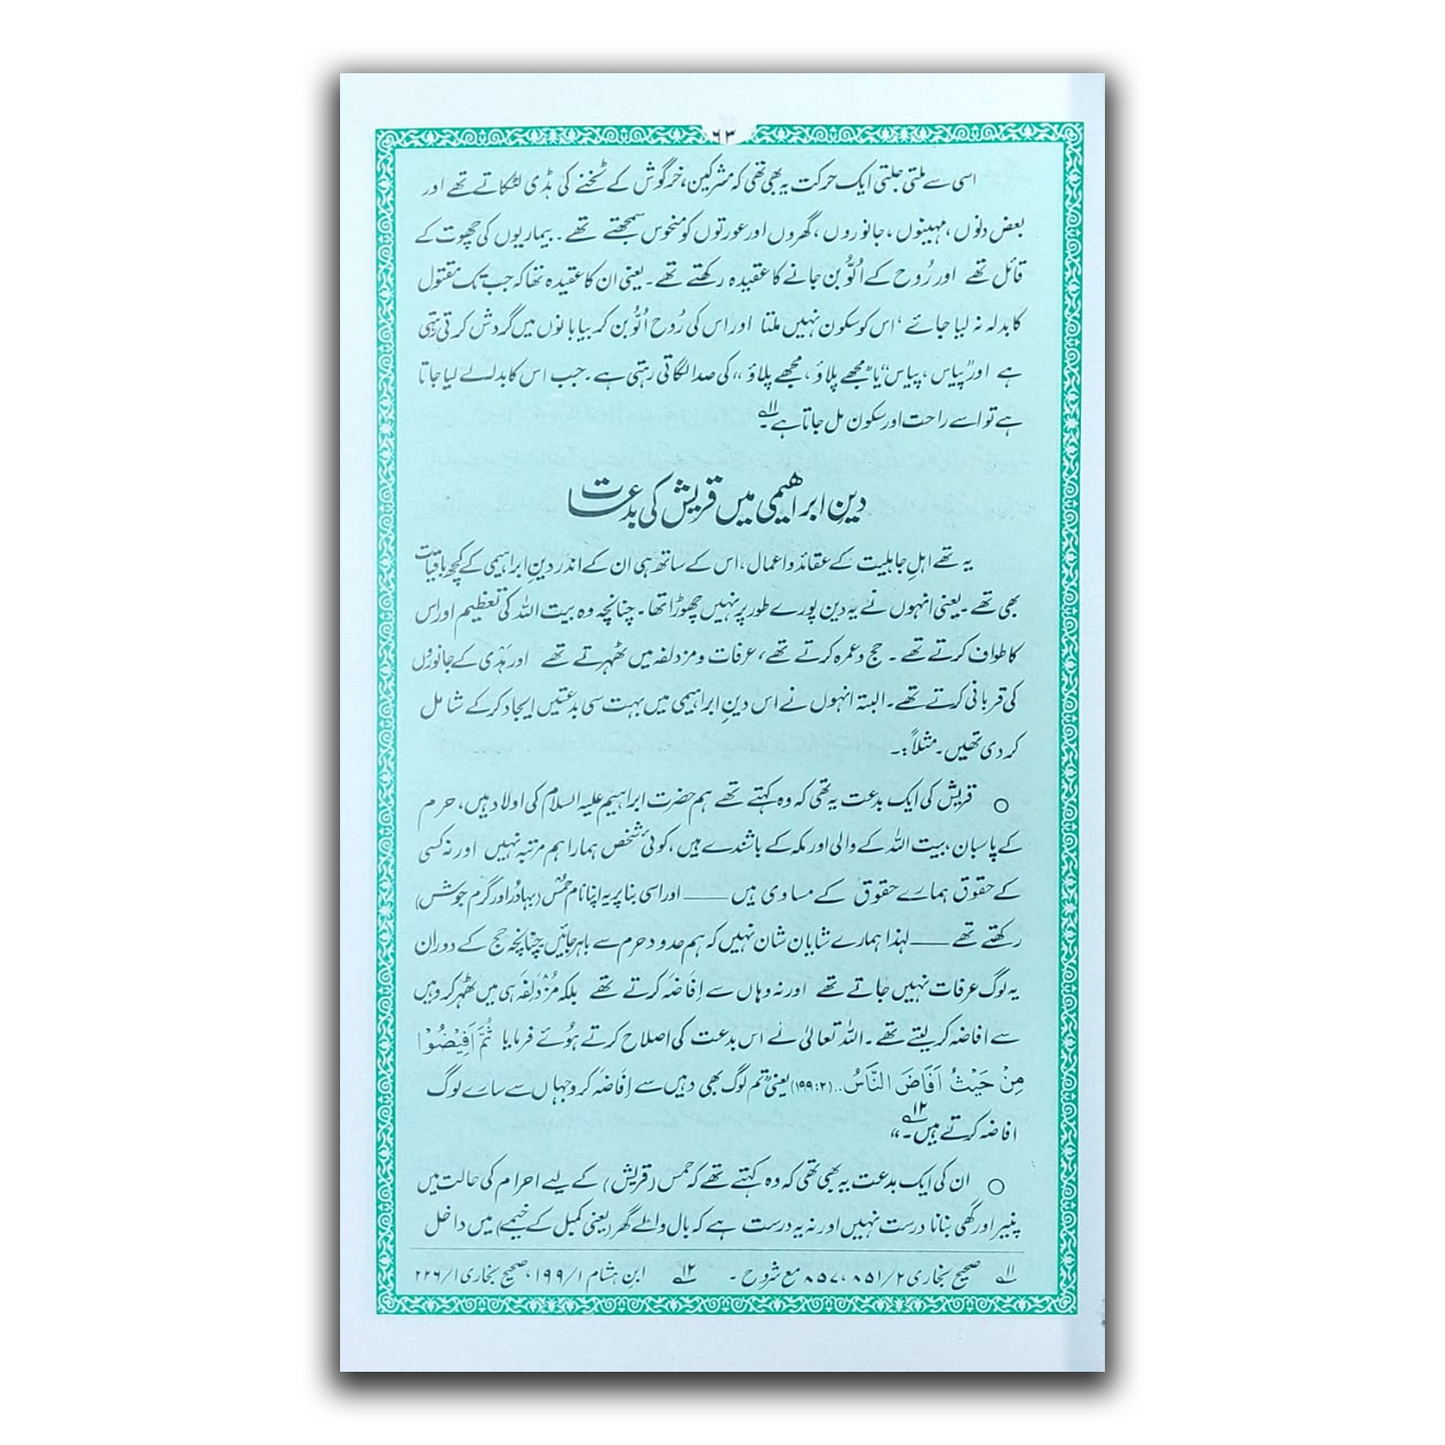 ۶۳
اسی سے ملتی جلتی ایک حرکت یہ بھی تھی کہ مشرکین، خرگوش کے ٹخنے کی ہڈی لٹکاتے تھے اور
بعض دنوں، مہینوں، جانوروں، گھروں اور عورتوں کو منحوس سمجھتے تھے۔ بیماریوں کی چھوت کے
قائل تھے اور رُوح کے اُلّو بن جانے کا عقیدہ رکھتے تھے۔ یعنی ان کا عقیدہ تھا کہ جب تک مقتول
کا بدلہ نہ لیا جائے، اس کو سکون نہیں ملتا اور اس کی رُوح اُلّو بن کر بیابانوں میں گردش کرتی رہتی
ہے اور "پیاس، پیاس" یا "مجھے پلاؤ، مجھے پلاؤ" کی صدا لگاتی رہتی ہے۔ جب اس کا بدلہ لے لیا جاتا
ہے تو اسے راحت اور سکون مل جاتا ہے۔ ۱۱
دینِ ابراھیمی میں قریش کی بدعات
یہ تھے اہلِ جاہلیت کے عقائد و اعمال، اس کے ساتھ ہی ان کے اندر دینِ ابراہیمی کے کچھ باقیات
بھی تھے۔ یعنی انہوں نے یہ دین پورے طور پر نہیں چھوڑا تھا۔ چنانچہ وہ بیت اللہ کی تعظیم اور اس
کا طواف کرتے تھے۔ حج و عمرہ کرتے تھے، عرفات و مزدلفہ میں ٹھہرتے تھے اور ہَدْی کے جانوروں
کی قربانی کرتے تھے۔ البتہ انہوں نے اس دینِ ابراہیمی میں بہت سی بدعتیں ایجاد کر کے شامل
کر دی تھیں۔ مثلاً :۔
○ قریش کی ایک بدعت یہ تھی کہ وہ کہتے تھے ہم حضرت ابراہیم علیہ السلام کی اولاد ہیں، حرم
کے پاسبان، بیت اللہ کے والی اور مکہ کے باشندے ہیں، کوئی شخص ہمارا ہم مرتبہ نہیں اور نہ کسی
کے حقوق ہمارے حقوق کے مساوی ہیں —— اور اسی بنا پر یہ اپنا نام حُمس (بہادر اور گرم جوش)
رکھتے تھے —— لہٰذا ہمارے شایانِ شان نہیں کہ ہم حدودِ حرم سے باہر جائیں چنانچہ حج کے دوران
یہ لوگ عرفات نہیں جاتے تھے اور نہ وہاں سے اِفَاضَہ کرتے تھے بلکہ مُزْدَلِفَہ ہی میں ٹھہر کر وہیں
سے افاضہ کر لیتے تھے۔ اللہ تعالیٰ نے اس بدعت کی اصلاح کرتے ہُوئے فرمایا ثُمَّ اَفِیْضُوْا
مِنْ حَیْثُ اَفَاضَ النَّاسُ.. (۲:۱۹۹) یعنی "تم لوگ بھی وہیں سے اِفَاضَہ کرو جہاں سے سارے لوگ
افاضہ کرتے ہیں۔ ۱۲"
○ ان کی ایک بدعت یہ بھی تھی کہ وہ کہتے تھے کہ حمس (قریش) کے لیے احرام کی حالت میں
پنیر اور گھی بنانا درست نہیں اور نہ یہ درست ہے کہ بال والے گھر (یعنی کمبل کے خیمے) میں داخل
۱۱ صحیح بخاری ۲/۸۵۱، ۸۵۷ مع شروح۔ ۱۲ ابنِ ہشام ۱/۱۹۹، صحیح بخاری ۱/۲۲۶